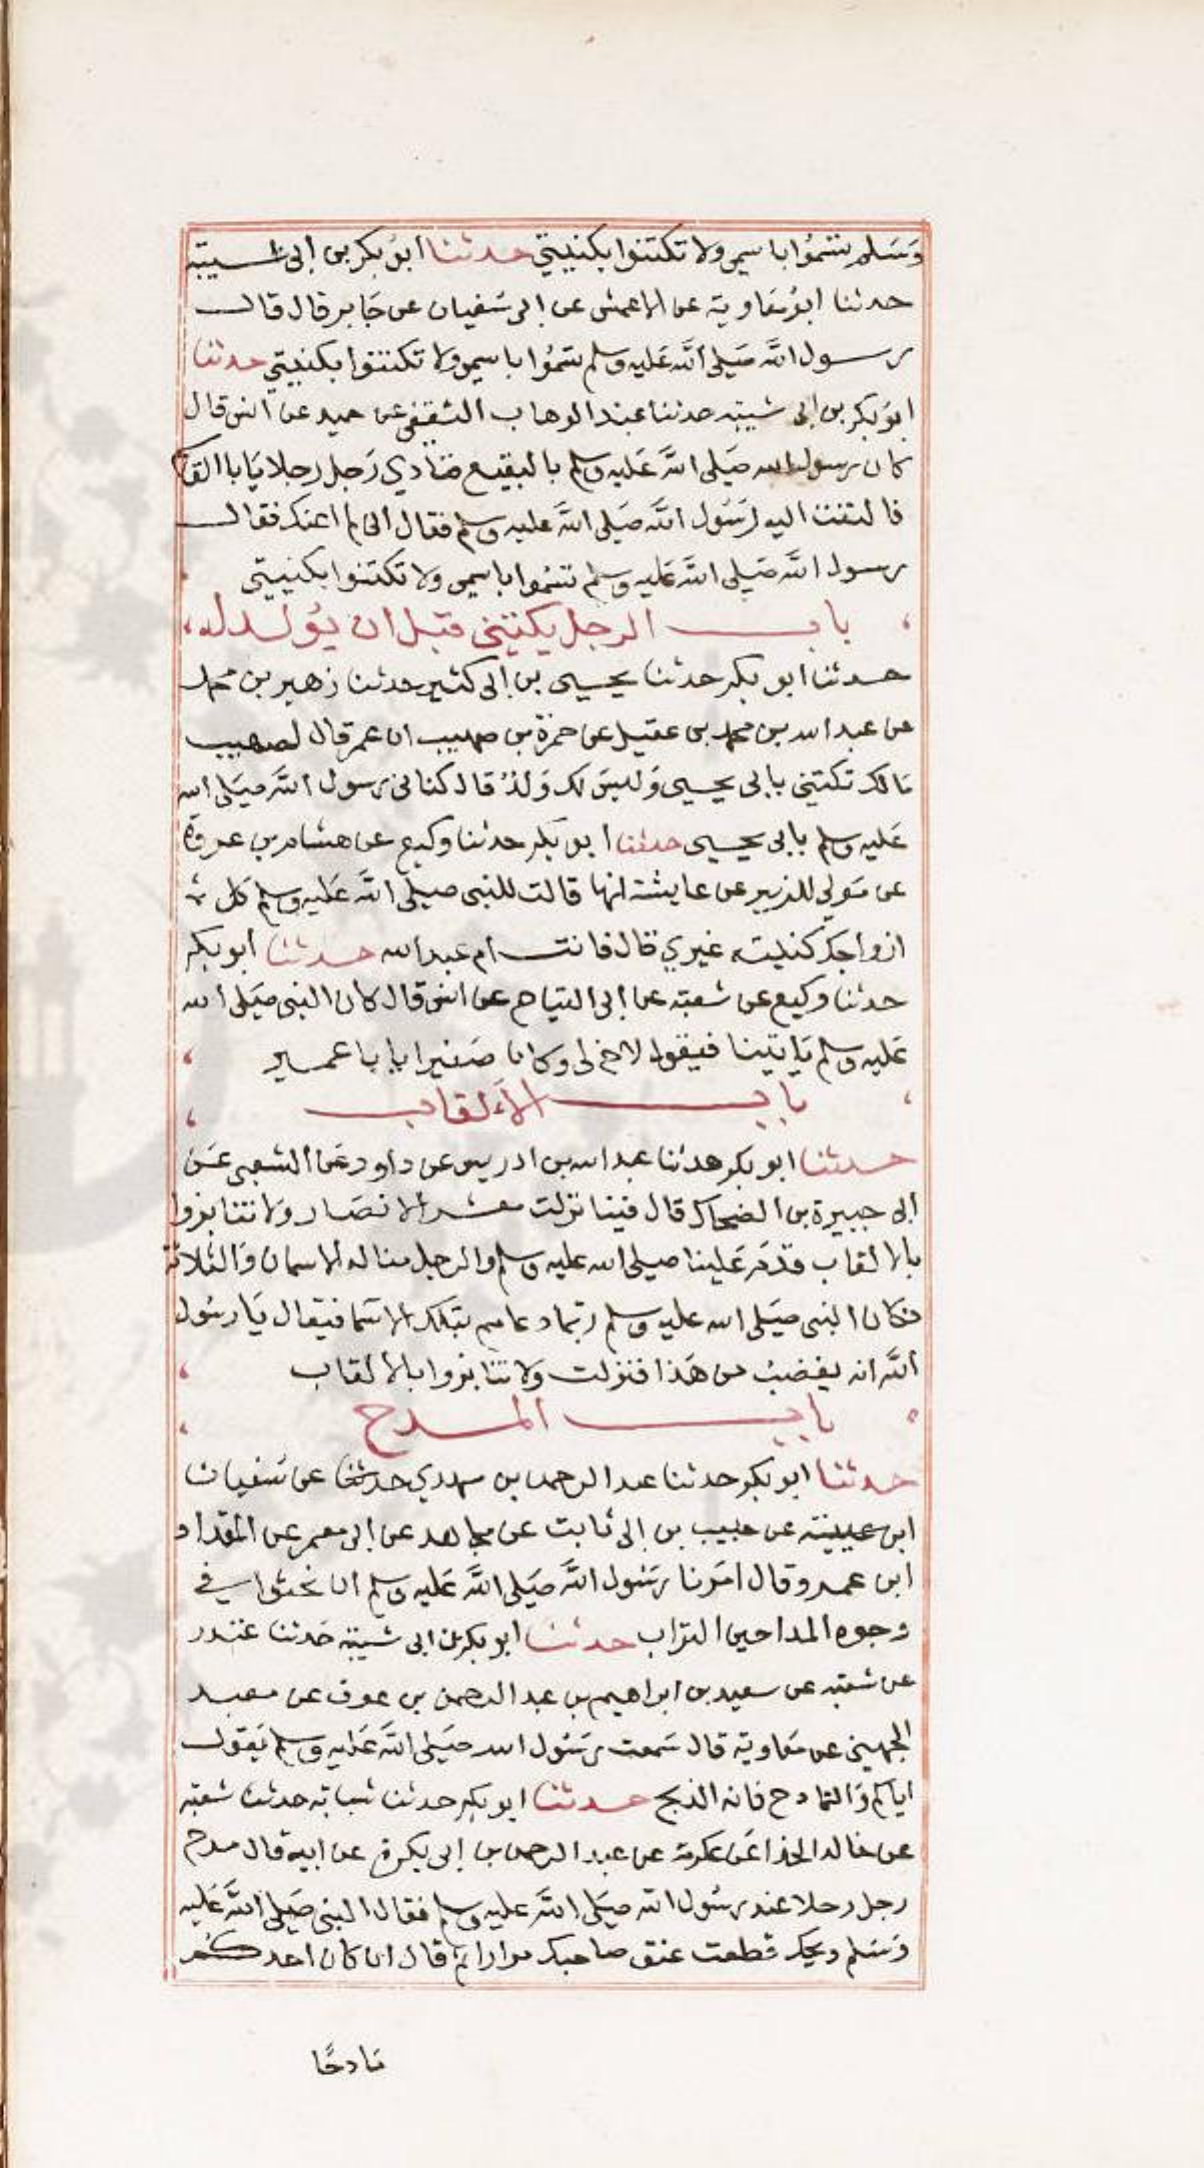 وسلم تسموا باسمي ولا تكتنوا بكنيتي حدثنا ابو بكر بن ابي شيبة
حدثنا ابو معاوية عن الاعمش عن ابي سفيان عن جابر قال قال
رسول الله صلى الله عليه وسلم تسموا باسمي ولا تكتنوا بكنيتي حدثنا
ابو بكر بن ابي شيبة حدثنا عبد الوهاب الثقفي عن حميد عن انس قال
كان رسول الله صلى الله عليه وسلم بالبقيع فنادي رجل رجلا يابا القا
فالتفت اليه رسول الله صلى الله عليه وسلم فقال اني لم اعنك فقال
رسول الله صلى الله عليه وسلم تسموا باسمي ولا تكتنوا بكنيتي
باب الرجل يكتني قبل ان يولد له
حدثنا ابو بكر حدثنا يحيى بن ابي كثير حدثنا زهير بن محمد
عن عبد الله بن محمد بن عقيل عن حمزة بن صهيب ان عمر قال لصهيب
مالك تكتني بابي يحيى وليس لك ولد قال كناني رسول الله صلى الله
عليه وسلم بابي يحيى حدثنا ابو بكر حدثنا وكيع عن هشام بن عروة
عن مولي للزبير عن عايشة انها قالت للنبي صلى الله عليه وسلم كل
ازواجك كنيته غيري قال فانت ام عبد الله حدثنا ابو بكر
حدثنا وكيع عن شعبة عن ابي التياح عن انس قال كان النبي صلى الله
عليه وسلم ياتينا فيقول لاخ لي وكان صغيرا يابا عمير
باب الالقاب
حدثنا ابو بكر حدثنا عبد الله بن ادريس عن داود عن الشعبي عن
ابي جبيرة بن الضحاك قال فينا نزلت معشر الانصار ولا تنابزوا
بالالقاب قدم علينا صلى الله عليه وسلم والرجل منا له الاسمان والثلاثة
فكان النبي صلى الله عليه وسلم ربما دعاهم بتلك الاسما فيقال يا رسول
الله انه يغضب من هذا فنزلت ولا تنابزوا بالالقاب
باب المدح
حدثنا ابو بكر حدثنا عبد الرحمن بن مهدي حدثنا عن سفيان
ابن عيينة عن حبيب بن ابي ثابت عن مجاهد عن ابي معمر عن المقداد
ابن عمرو قال امرنا رسول الله صلى الله عليه وسلم ان نحثوا في
وجوه المداحين التراب حدثنا ابو بكر بن ابي شيبة حدثنا غندر
عن شعبة عن سعيد بن ابراهيم بن عبد الرحمن بن عوف عن معبد
الجهيني عن معاوية قال سمعت رسول الله صلى الله عليه وسلم يقول
اياكم والتمادح فانه الذبح حدثنا ابو بكر حدثنا شبابة حدثنا شعبة
عن خالد الحذا عن عكرمة عن عبد الرحمن بن ابي بكرة عن ابيه قال مدح
رجل رجلا عند رسول الله صلى الله عليه وسلم فقال النبي صلى الله عليه
وسلم ويحك قطعت عنق صاحبك مرارا ثم قال ان كان احدكم
مادحًا